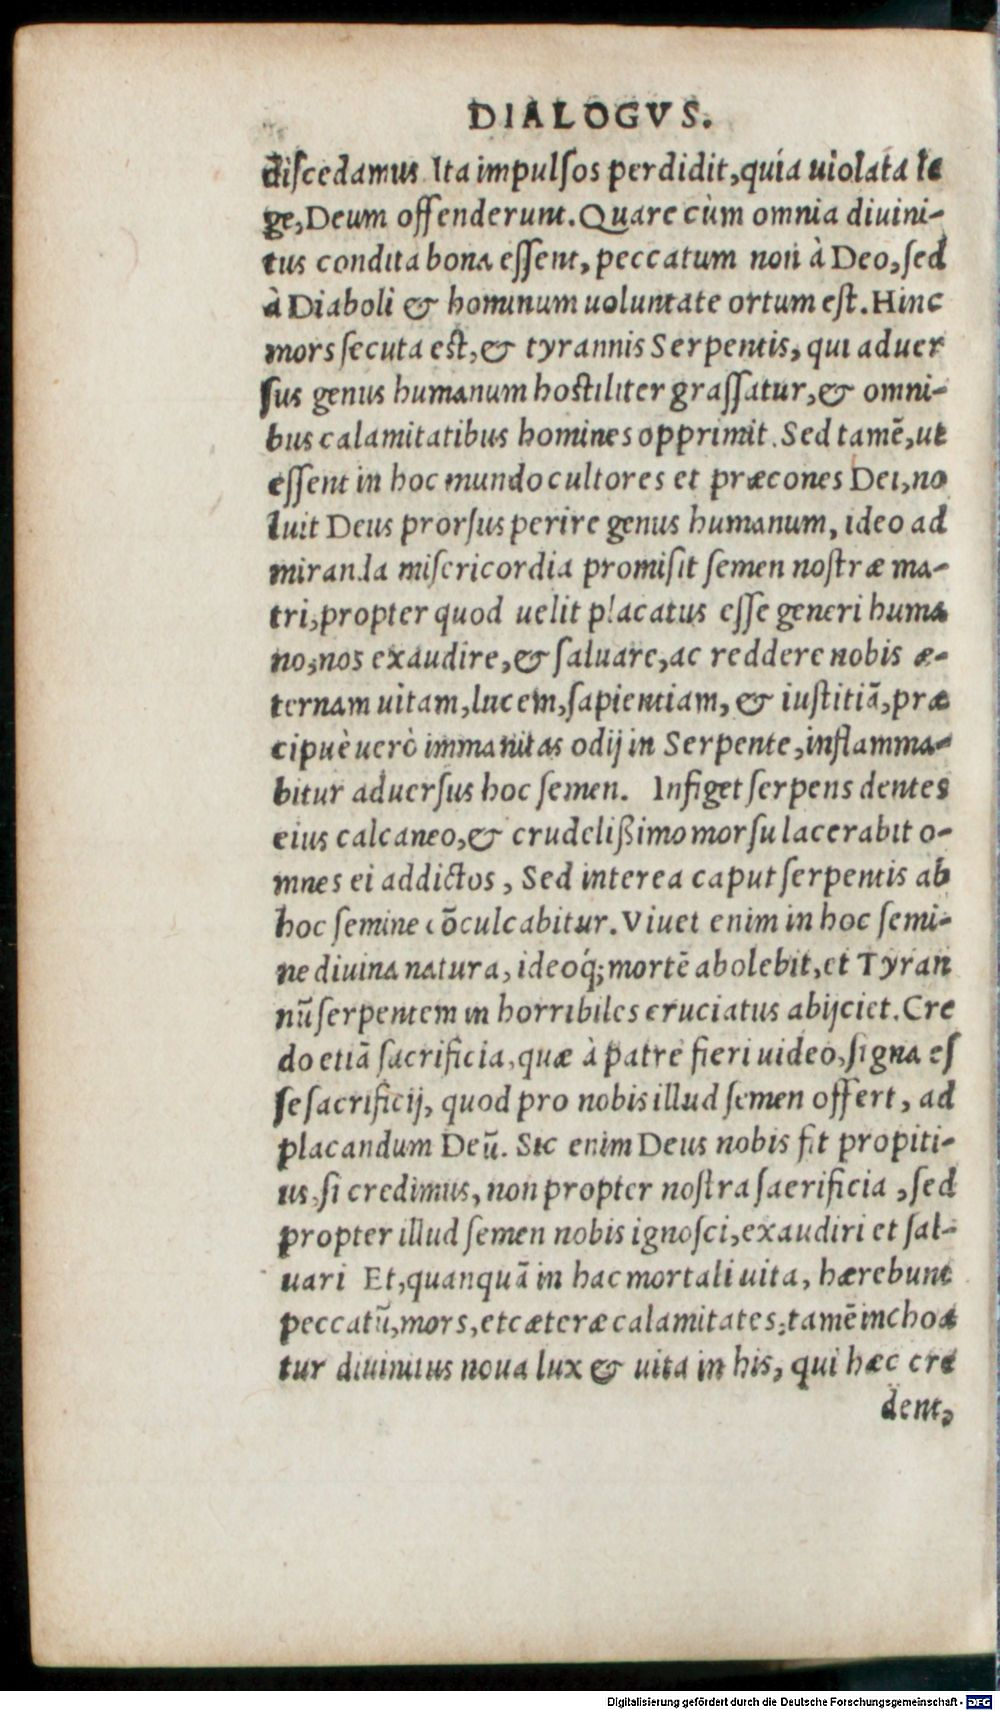 DIALOGVS.
diſcedamus Ita impulſos perdidit, quia uiolata le
ge, Deum offenderunt. Quare cùm omnia diuini-
tus condita bona eſſent, peccatum non à Deo, ſed
à Diaboli & hominum uoluntate ortum eſt. Hinc
mors ſecuta eſt, & tyrannis Serpentis, qui aduer
ſus genus humanum hostiliter graſſatur, & omni-
bus calamitatibus homines opprimit. Sed tamē, ut
eſſent in hoc mundo cultores et præcones Dei, no
luit Deus prorſus perire genus humanum, ideo ad
miranda miſericordia promiſit ſemen noſtræ ma-
tri, propter quod uelit placatus eſſe generi huma
no, nos exaudire, & ſaluare, ac reddere nobis æ-
ternam uitam, lucem, ſapientiam, & iuſtitiā, præ
cipuè uerò immanitas odij in Serpente, inflamma-
bitur aduerſus hoc ſemen. Infiget ſerpens dentes
eius calcaneo, & crudelißimo morſu lacerabit o-
mnes ei addictos, Sed interea caput ſerpentis ab
hoc ſemine cōculcabitur. Viuet enim in hoc ſemi-
ne diuina natura, ideoq́; mortē abolebit, et Tyran
nū ſerpentem in horribiles cruciatus abijciet. Cre
do etiā ſacrificia, quæ à patre fieri uideo, ſigna eſ
ſe ſacrificij, quod pro nobis illud ſemen offert, ad
placandum Deū. Sic enim Deus nobis fit propiti-
us, ſi credimus, non propter noſtra ſaerificia, ſed
propter illud ſemen nobis ignoſci, exaudiri et ſal-
uari Et, quanquā in hac mortali uita, hærebunt
peccatū, mors, et cæteræ calamitates, tamē inchoa
tur diuinitus noua lux & uita in his, qui hæc cre
dent,
Digitalisierung gefördert durch die Deutsche Forschungsgemeinschaft - DFG